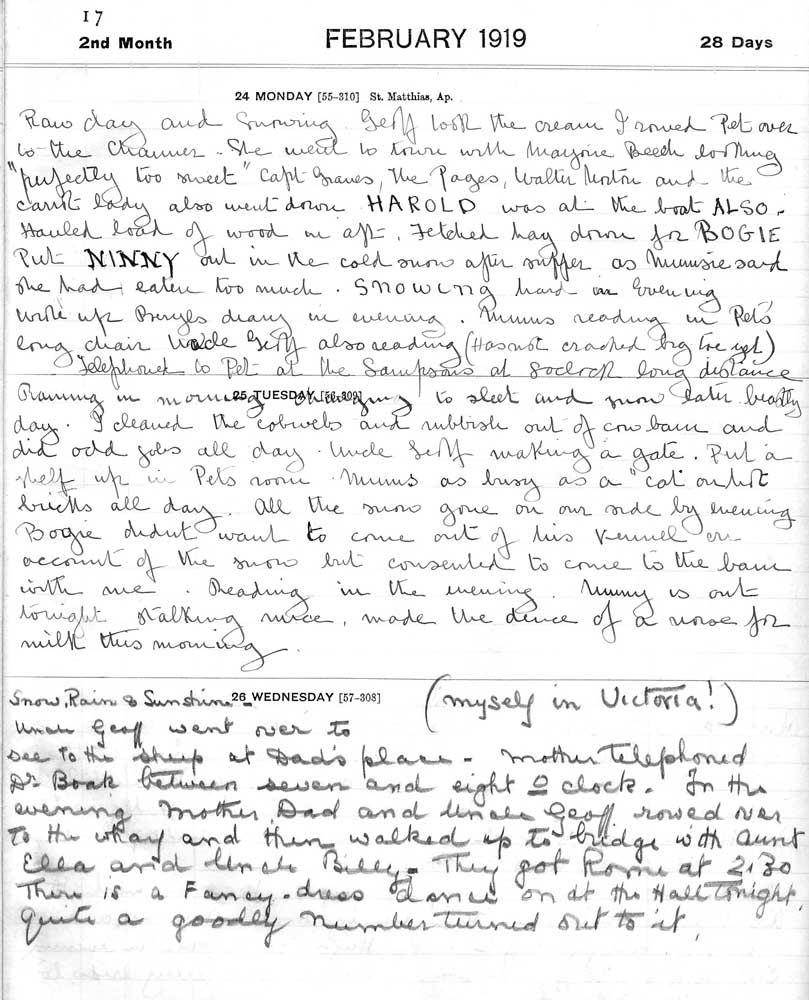 17
2nd Month
FEBRUARY 1919
28 Days
24 MONDAY [55-310] St. Matthias, Ap.
Raw day and Snowing Geoff took the cream I rowed Pet over
to the Channer. She went to town with Marjorie Beech looking
"perfectly too sweet" Capt Graves, the Pages, Walter Norton and the
carrot lady also went down HAROLD was at the boat ALSO.
Hauled load of wood in aft. Fetched hay down for BOGIE
Put NINNY out in the cold snow after supper as Mumsie said
she had eaten too much. SNOWING hard in Evening
wrote up diary in evening. Mums reading in Pets
long chair Uncle Geoff also reading (Has not cracked big toe yet)
Telephoned to Pet at the Sampsons at 8 oclock long distance
25 TUESDAY [56-309]
Raining in morning changing to sleet and snow later beastly
day. I cleaned the cobwebs and rubbish out of cow barn and
did odd jobs all day. Uncle Geoff making a gate. Put a
shelf up in Pets room. Mums as busy as a "cat on hot
bricks all day. All the snow gone on our side by evening
Bogie didnt want to come out of his kennel on
account of the snow but consented to come to the barn
with me. Reading in the evening. Ninny is out
tonight stalking mice, made the duce of a noise for
milk this morning.
26 WEDNESDAY [57-308]
(myself in Victoria!)
Snow, Rain & Sunshine -
Uncle Geoff went over to
see to the sheep at Dad's place - Mother telephoned
Dr Boak between seven and eight o clock. In the
evening Mother, Dad and Uncle Geoff rowed over
to the wharf and then walked up to bridge with Aunt
Ella and Uncle Billy. They got Rome at 2.30
There is a Fancy-dress dance on at the Hall tonight,
quite a goodly number turned out to it,